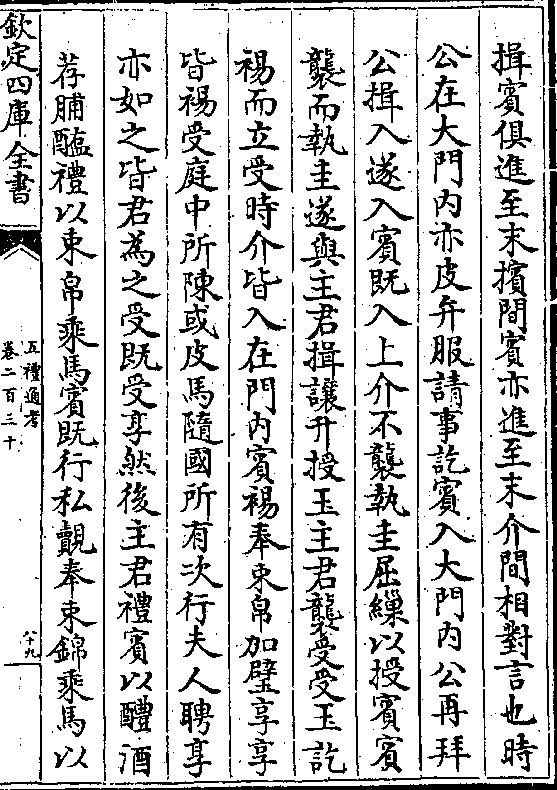 揖賓俱進至末擯間賓亦進至末介間相對言也時
公在大門内亦皮弁服請事訖賓入大門内公再拜
公揖入遂入賓既入上介不襲執圭屈繅以授賓賓
襲而執圭遂與主君揖讓升授玉主君襲受受玉訖
裼而立受時介皆入在門内賓裼奉束帛加璧享享
皆裼受庭中所陳或皮馬隨國所有次行夫人聘享
亦如之皆君為之受既受享然後主君禮賓以醴酒
荐脯醢禮以束帛乘馬賓既行私覿奉束錦乘馬以
欽定四庫全書
五禮通考
卷二百三十
八十九